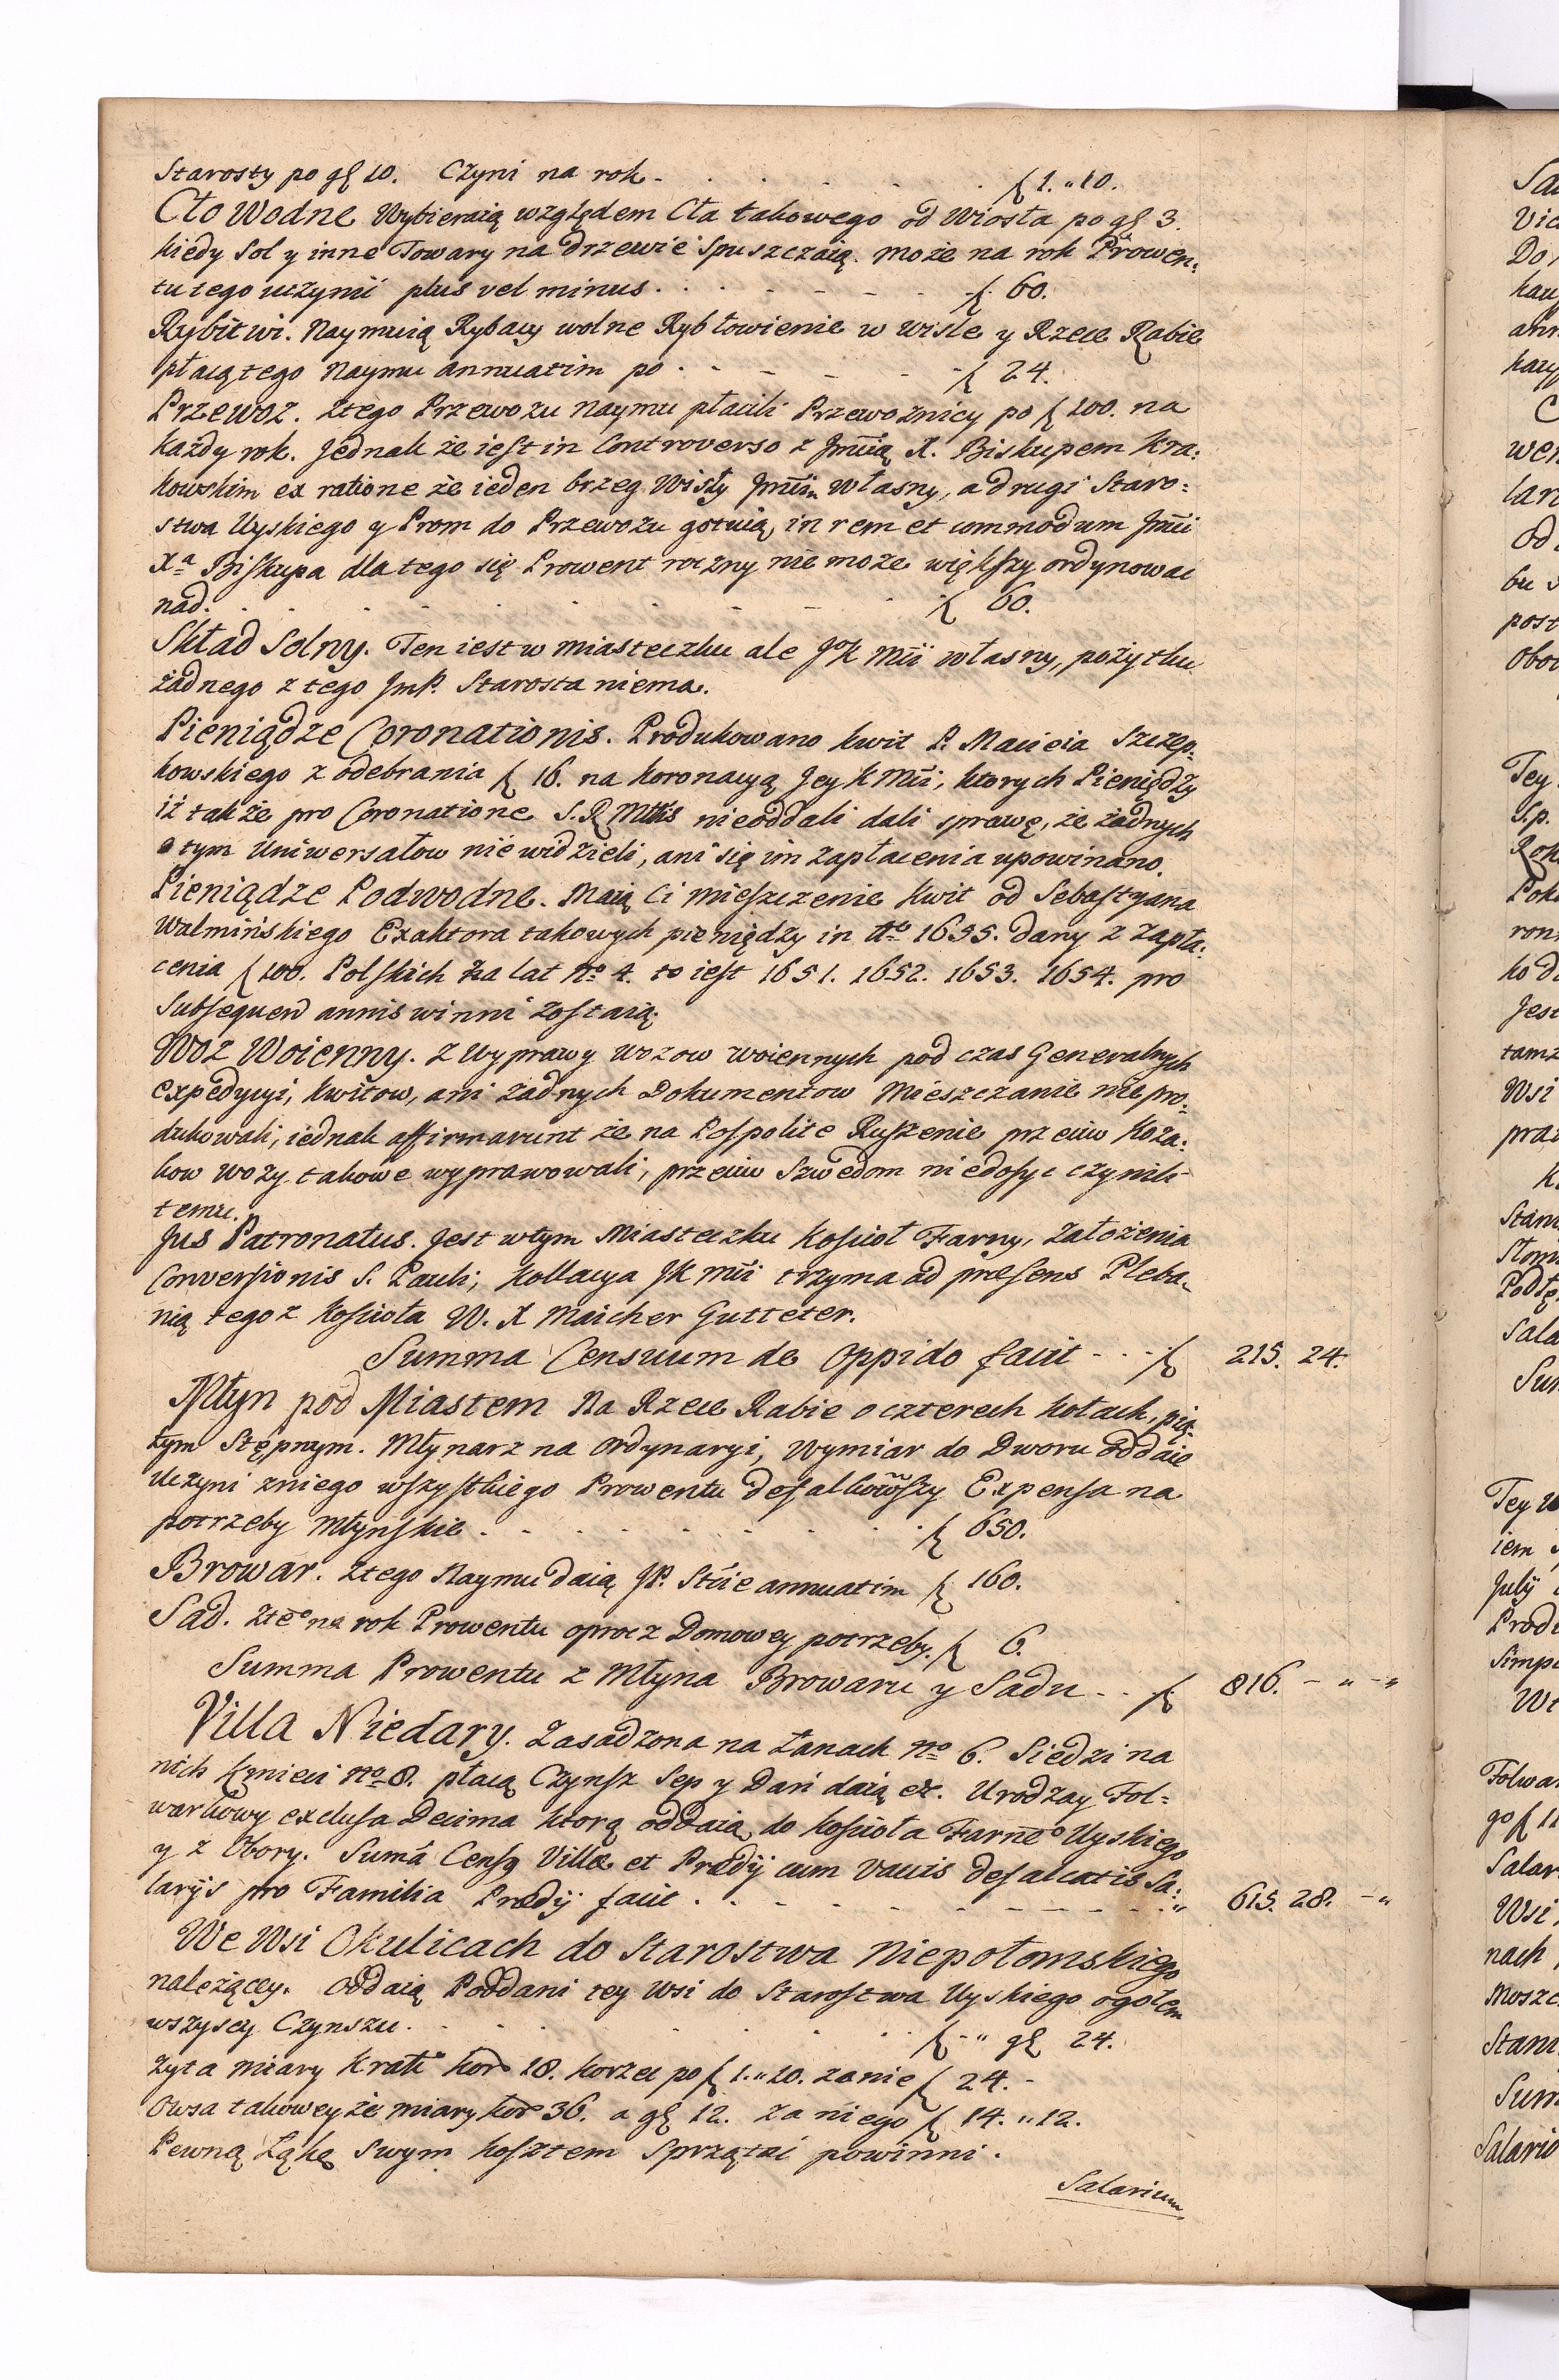 Starosty po gł 10. Czyni na rok - . . . . . . ƒ 1. „ 10.
Cło Wodne Wybieraią względem Cła takowego od Wiosła po gł 3.
kiedy Sol y inne Towary na drzewie Spuszczaią. może na rok Prowen:
tu tego uczynić plus vel minus . . . - - - - ƒ 60.
Rybitwi. Naymuią Rybacy wolne Ryb łowienie w Wisle y Rzece Rabie
płacą tego Naymu annuatim po . - - - - - ƒ 24.
Przewoz. Ztego Przewozu naymu płacili Przewoznicy po ƒ 100. na
każdy rok. Jednak że iest in Controverso z Jmcią X. Biskupem Kra:
kowskim ex ratione że ieden brzeg Wisły Jmcin Własny, a drugi Staro:
stwa Uyskiego y Prom do Przewozu gotuią in rem et commodum Jmci
Xa Biskupa dla tego się Prowent roczny nie może większy ordynowac
nad. . . . . . . . - - . ƒ 60.
Skład Solny. Ten iest w miasteczku ale JK Mci własny, pożytku
żadnego z tego JmP. Starosta niema.
Pieniądze Coronationis. Produkowano kwit P. Macieia Szczep:
kowskiego z odebrania ƒ 16. na Koronacyą Jey K Mci, ktorych Pieniędzy
iż także pro Coronatione S. R Mttis nieoddali dali sprawę, że żadnych
o tym Uniwersałow nie widzieli, ani się im zapłacenia upominano.
Pieniądze Podwodne. Maią Ci mieszczenie Kwit od Sebastyana
Walmińskiego Exaktora takowych pieniędzy in Ao 1655. dany z Zapła:
cenia ƒ 100. Polskich Za lat No 4. to iest 1651. 1652. 1653. 1654. pro
Subsequen annis winni zostaią.
Woz Woienny. Z Wyprawy wozow woiennych pod czas Generalnych
Expedycyi, kwitow, ani żadnych Dokumentow Mieszczanie nie pro:
dukowali, iednak affirmarunt że na Pospolite Ruszenie przeciw Koza:
kow wozy takowe wyprawowali, przeciw Szwedom niedosyc czynili
temu.
Jus Patronatus. Jest w tym Miasteczku Kosciot Farny, założenia
Conversionis S. Pauli, Kollacya JK Mci trzyma ad præsens Pleba-
nią tegoz kosciola W. X Maicher Gutteter.
Summa Censuum de Oppido facit - - - ƒ 215. 24.
Młyn pod Miastem na Rzece Rabie o czterech kołach, pią:
tym Stępnym. Młynarz na Ordynaryi, Wymiar do Dworu oddaie
Uczyni zniego wszystkiego Prowentu defalkowszy Expensa na
potrzeby młynskie . - - - - - . . . ƒ 650.
Browar. Ztego Naymu daią JP. Stcie annuatim ƒ 160.
Sad. Zteo na rok Prowentu oprocz Domowey potrzeby. ƒ 6.
Summa Prowentu z Młyna Browaru y Sadu - . - ƒ 816. - „ - „
Villa Niedary. Zasadzona na Łanach No 6. Siedzi na
nich kmieci No 8. płacą Czynsz Sep y Dań daią etc. Urodzay Fol:
warkowy exclusa Decima ktorą oddaią do kosciola Farneo Uyskiego
y z Obory. Suma Censq Villæ et Prædÿ cum vaccis defalcatis Sa:
larÿs pro Familia Prædÿ facit . . - - - - - - - - - „ 615. 28. - „
We Wsi Okulicach do Starostwa Niepołomskiego
należącey. Oddaią Poddani tey Wsi do Starostwa Uyskiego ogołem
wszyscy Czynszu . . . . . . . ƒ - „ gł 24.
Zyta miary Krako kor 18. korzec po ƒ 1. „ 10. zanie ƒ 24. -
Owsa takoweyże miary kor 36. a gł 12. za niego ƒ 14. „ 12.
Pewną Łąkę Swym kosztem Sprzątai powinni .
Salarium